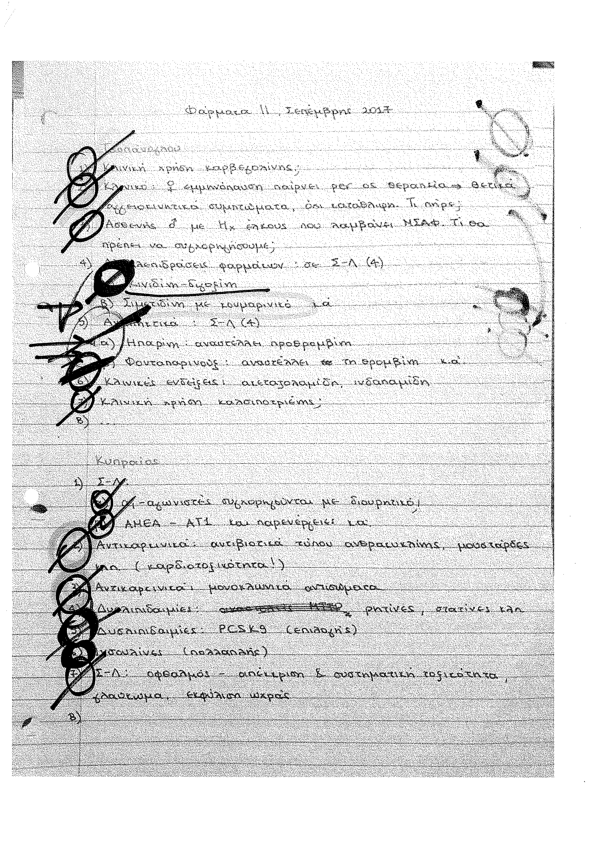 Φάρμακα ΙΙ, Σεπτέμβρης 2017
1) Κλινική χρήση καρβεγολίνης;
Κλινικό: ♀ εμμηνόπαυση παίρνει per os θεραπεία → θετικά
αγγειοκινητικά συμπτώματα, όχι κατάθλιψη. Τι πήρε;
Ασθενής ♂ με Hx έλκους που λαμβάνει ΜΣΑΦ. Τι θα
πρέπει να συγχορηγήσουμε;
4) φαρμάκων: σε Σ-Λ (4)
-διγοξίνη
β) Σιμετιδίνη με κουμαρινικό κ.ά
5) Σ-Λ (4)
α) Ηπαρίνη: αναστέλλει προθρομβίνη
Φονταπαρινούξ: αναστέλλει τη θρομβίνη κ.ά.
6) Κλινικές ενδείξεις: ακεταζολαμίδη, ινδαπαμίδη
7) Κλινική χρήση καλσιποτριένης;
8) ...
Κυπραίος
1) Σ-Λ:
α1-αγωνιστές συγχορηγούνται με διουρητικό;
ΑΜΕΑ - ΑΤ1 και παρενέργειες κ.ά.
2) Αντικαρκινικά: αντιβιοτικά τύπου ανθρακυκλίνης, μουστάρδες
κλπ (καρδιοτοξικότητα!)
3) Αντικαρκινικά: μονοκλωνικά αντισώματα
4) Δυσλιπιδαιμίες: ρητίνες, στατίνες κλπ
5) Δυσλιπιδαιμίες: PCSK9 (επιλογής)
ινσουλίνες (πολλαπλής)
7) Σ-Λ: οφθαλμός - απέκκριση & συστηματική τοξικότητα,
γλαύκωμα, εκφύλιση ωχράς
8)